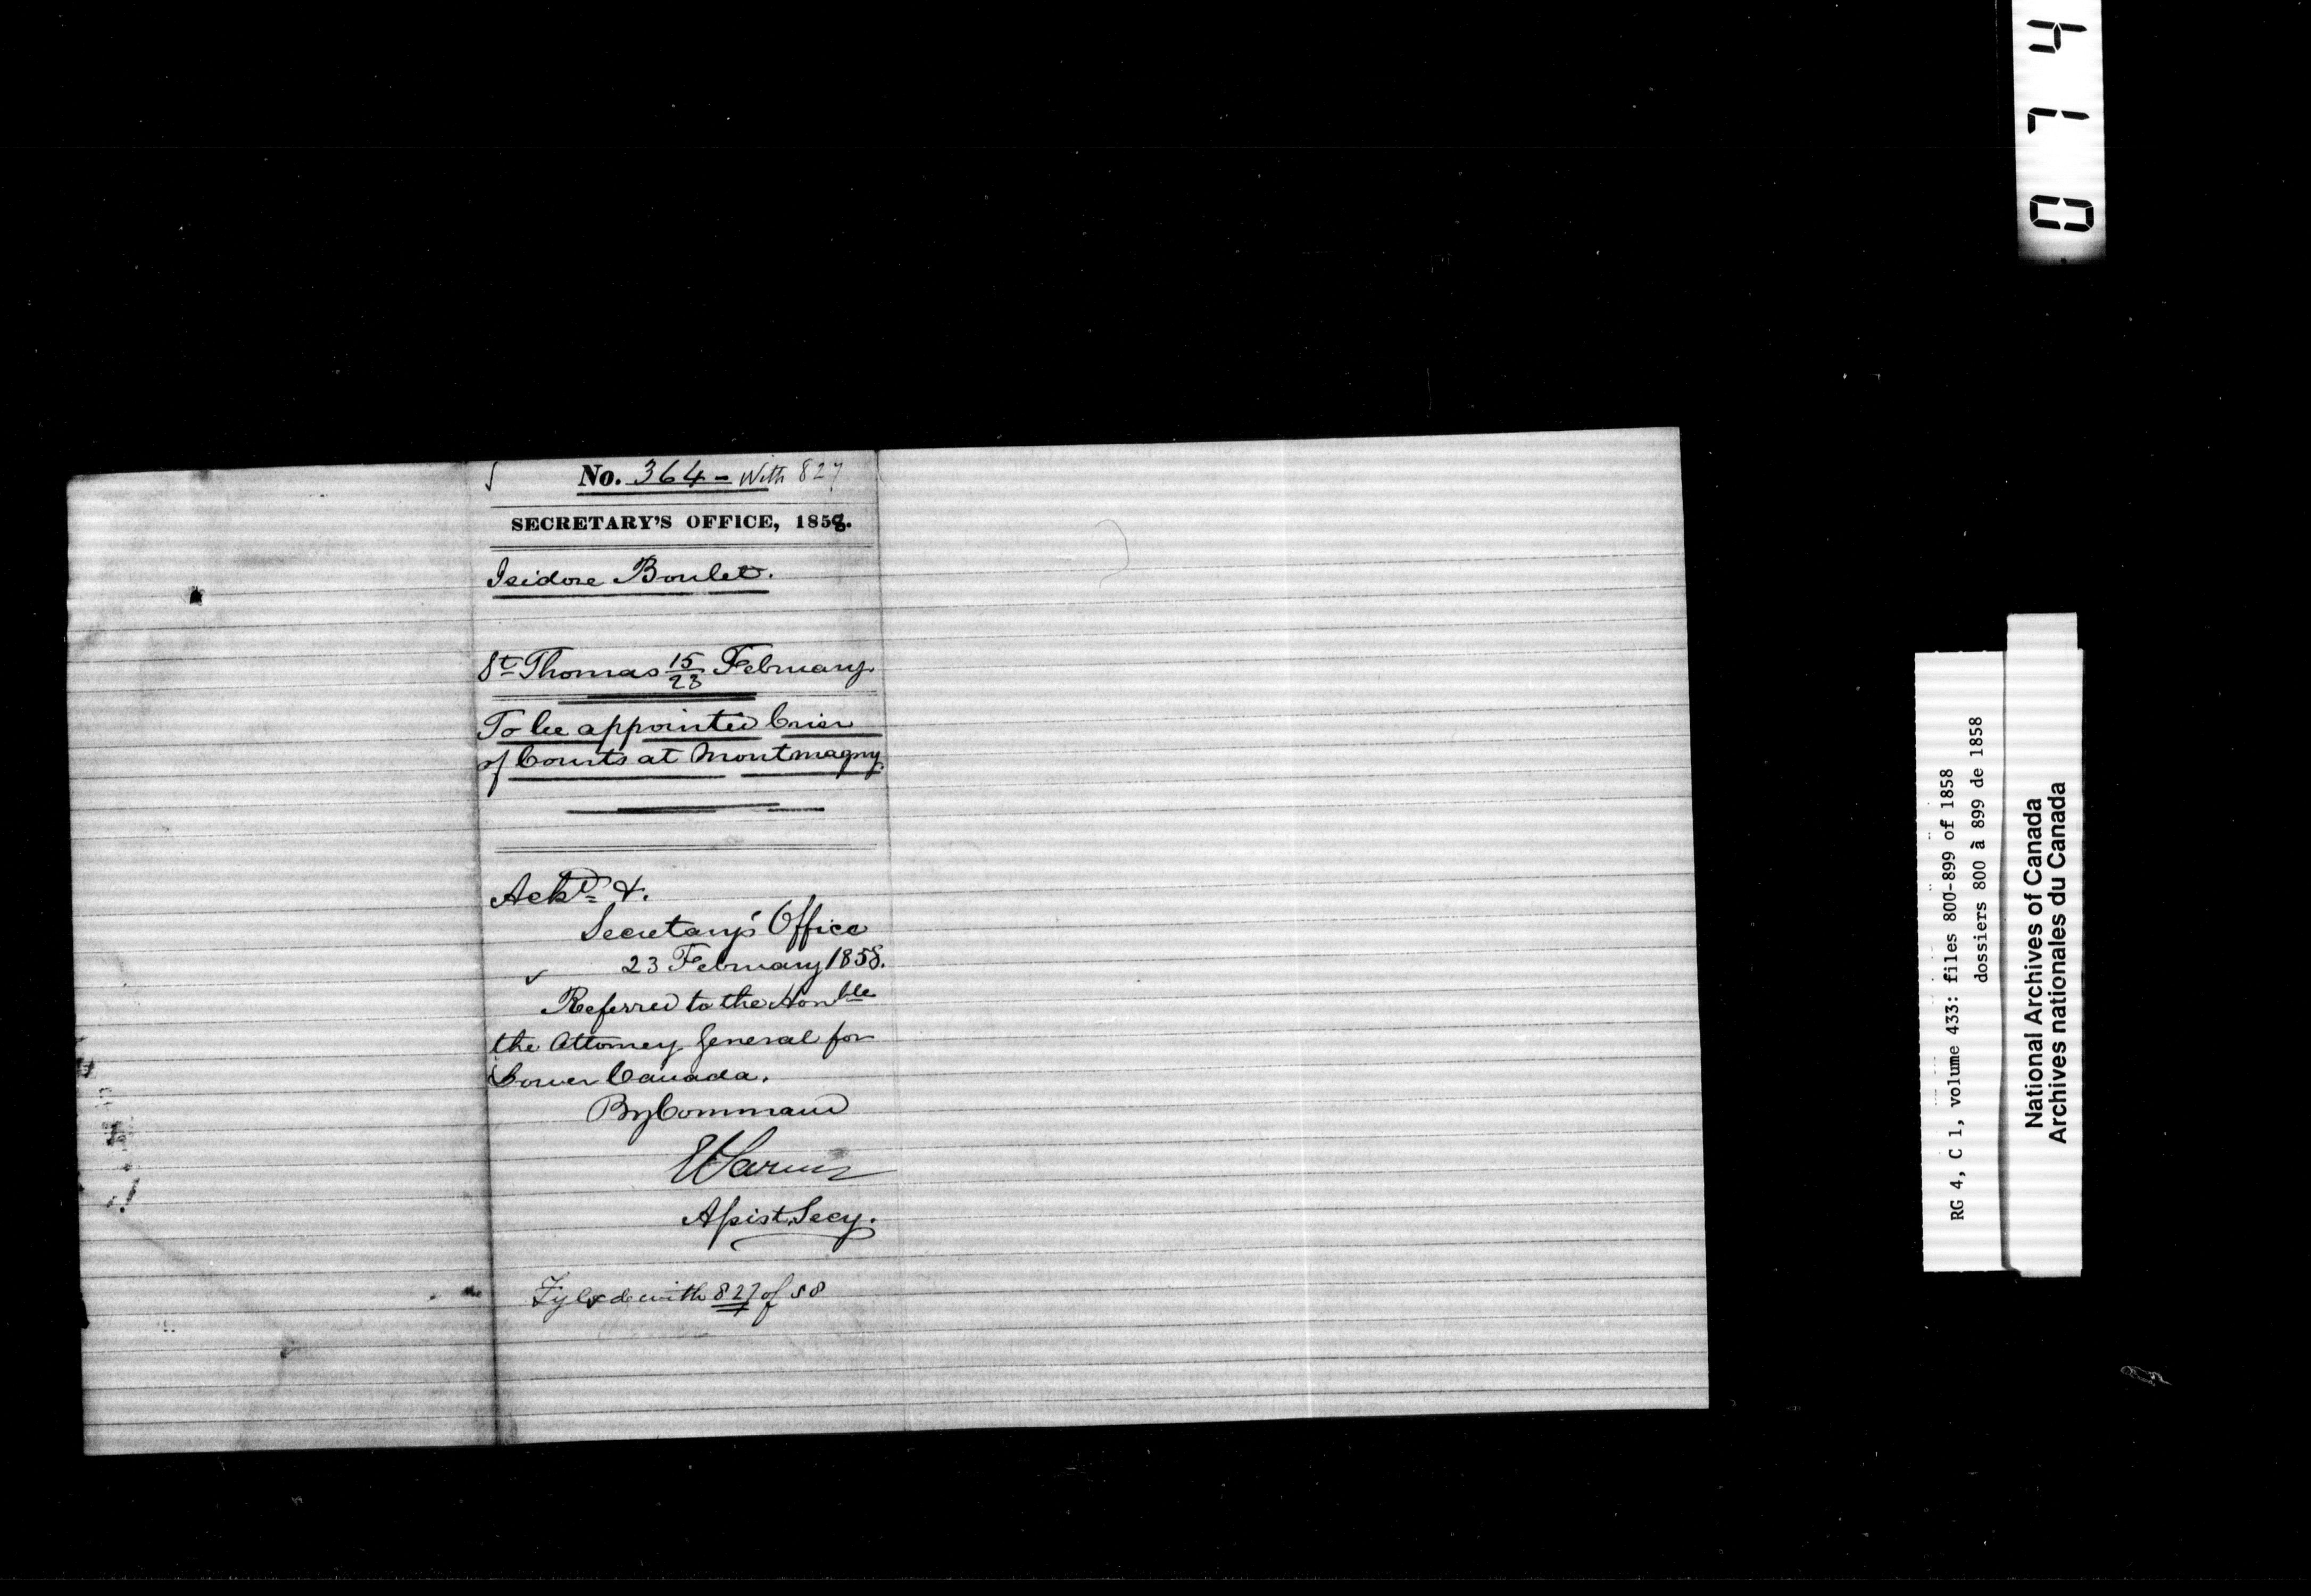 No. 364 - With 827
SECRETARY'S OFFICE, 1858.
Isidore Boulet.
St Thomas 15/23 February
To be appointed Crier
of Courts at Montmagny
Ackd &.
Secretary's Office
23 February 1858.
Referred to the Honble
the Attorney General for
Lower Canada.
By Command
Assist. Secy.
Fyled with 827 of 58
0714
RG 4, C 1, volume 433: files 800-899 of 1858
dossiers 800 à 899 de 1858
National Archives of Canada
Archives nationales du Canada